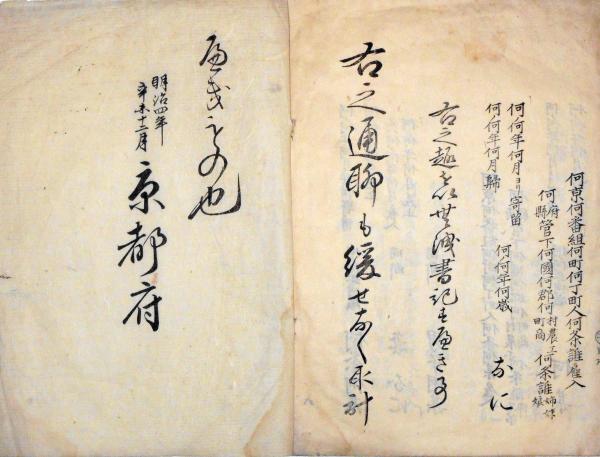 何京何番組何町何丁町人何条誰雇入
何府縣管下何國何郡何村町農工商何条誰姉妹娘
何何年何月ヨリ寄留
何何年何月歸
何何年何歳
なに
右之趣を以無洩書記すへき事
右之通聊も緩せなく取計
へきもの也
明治四年
辛未十二月
京都府